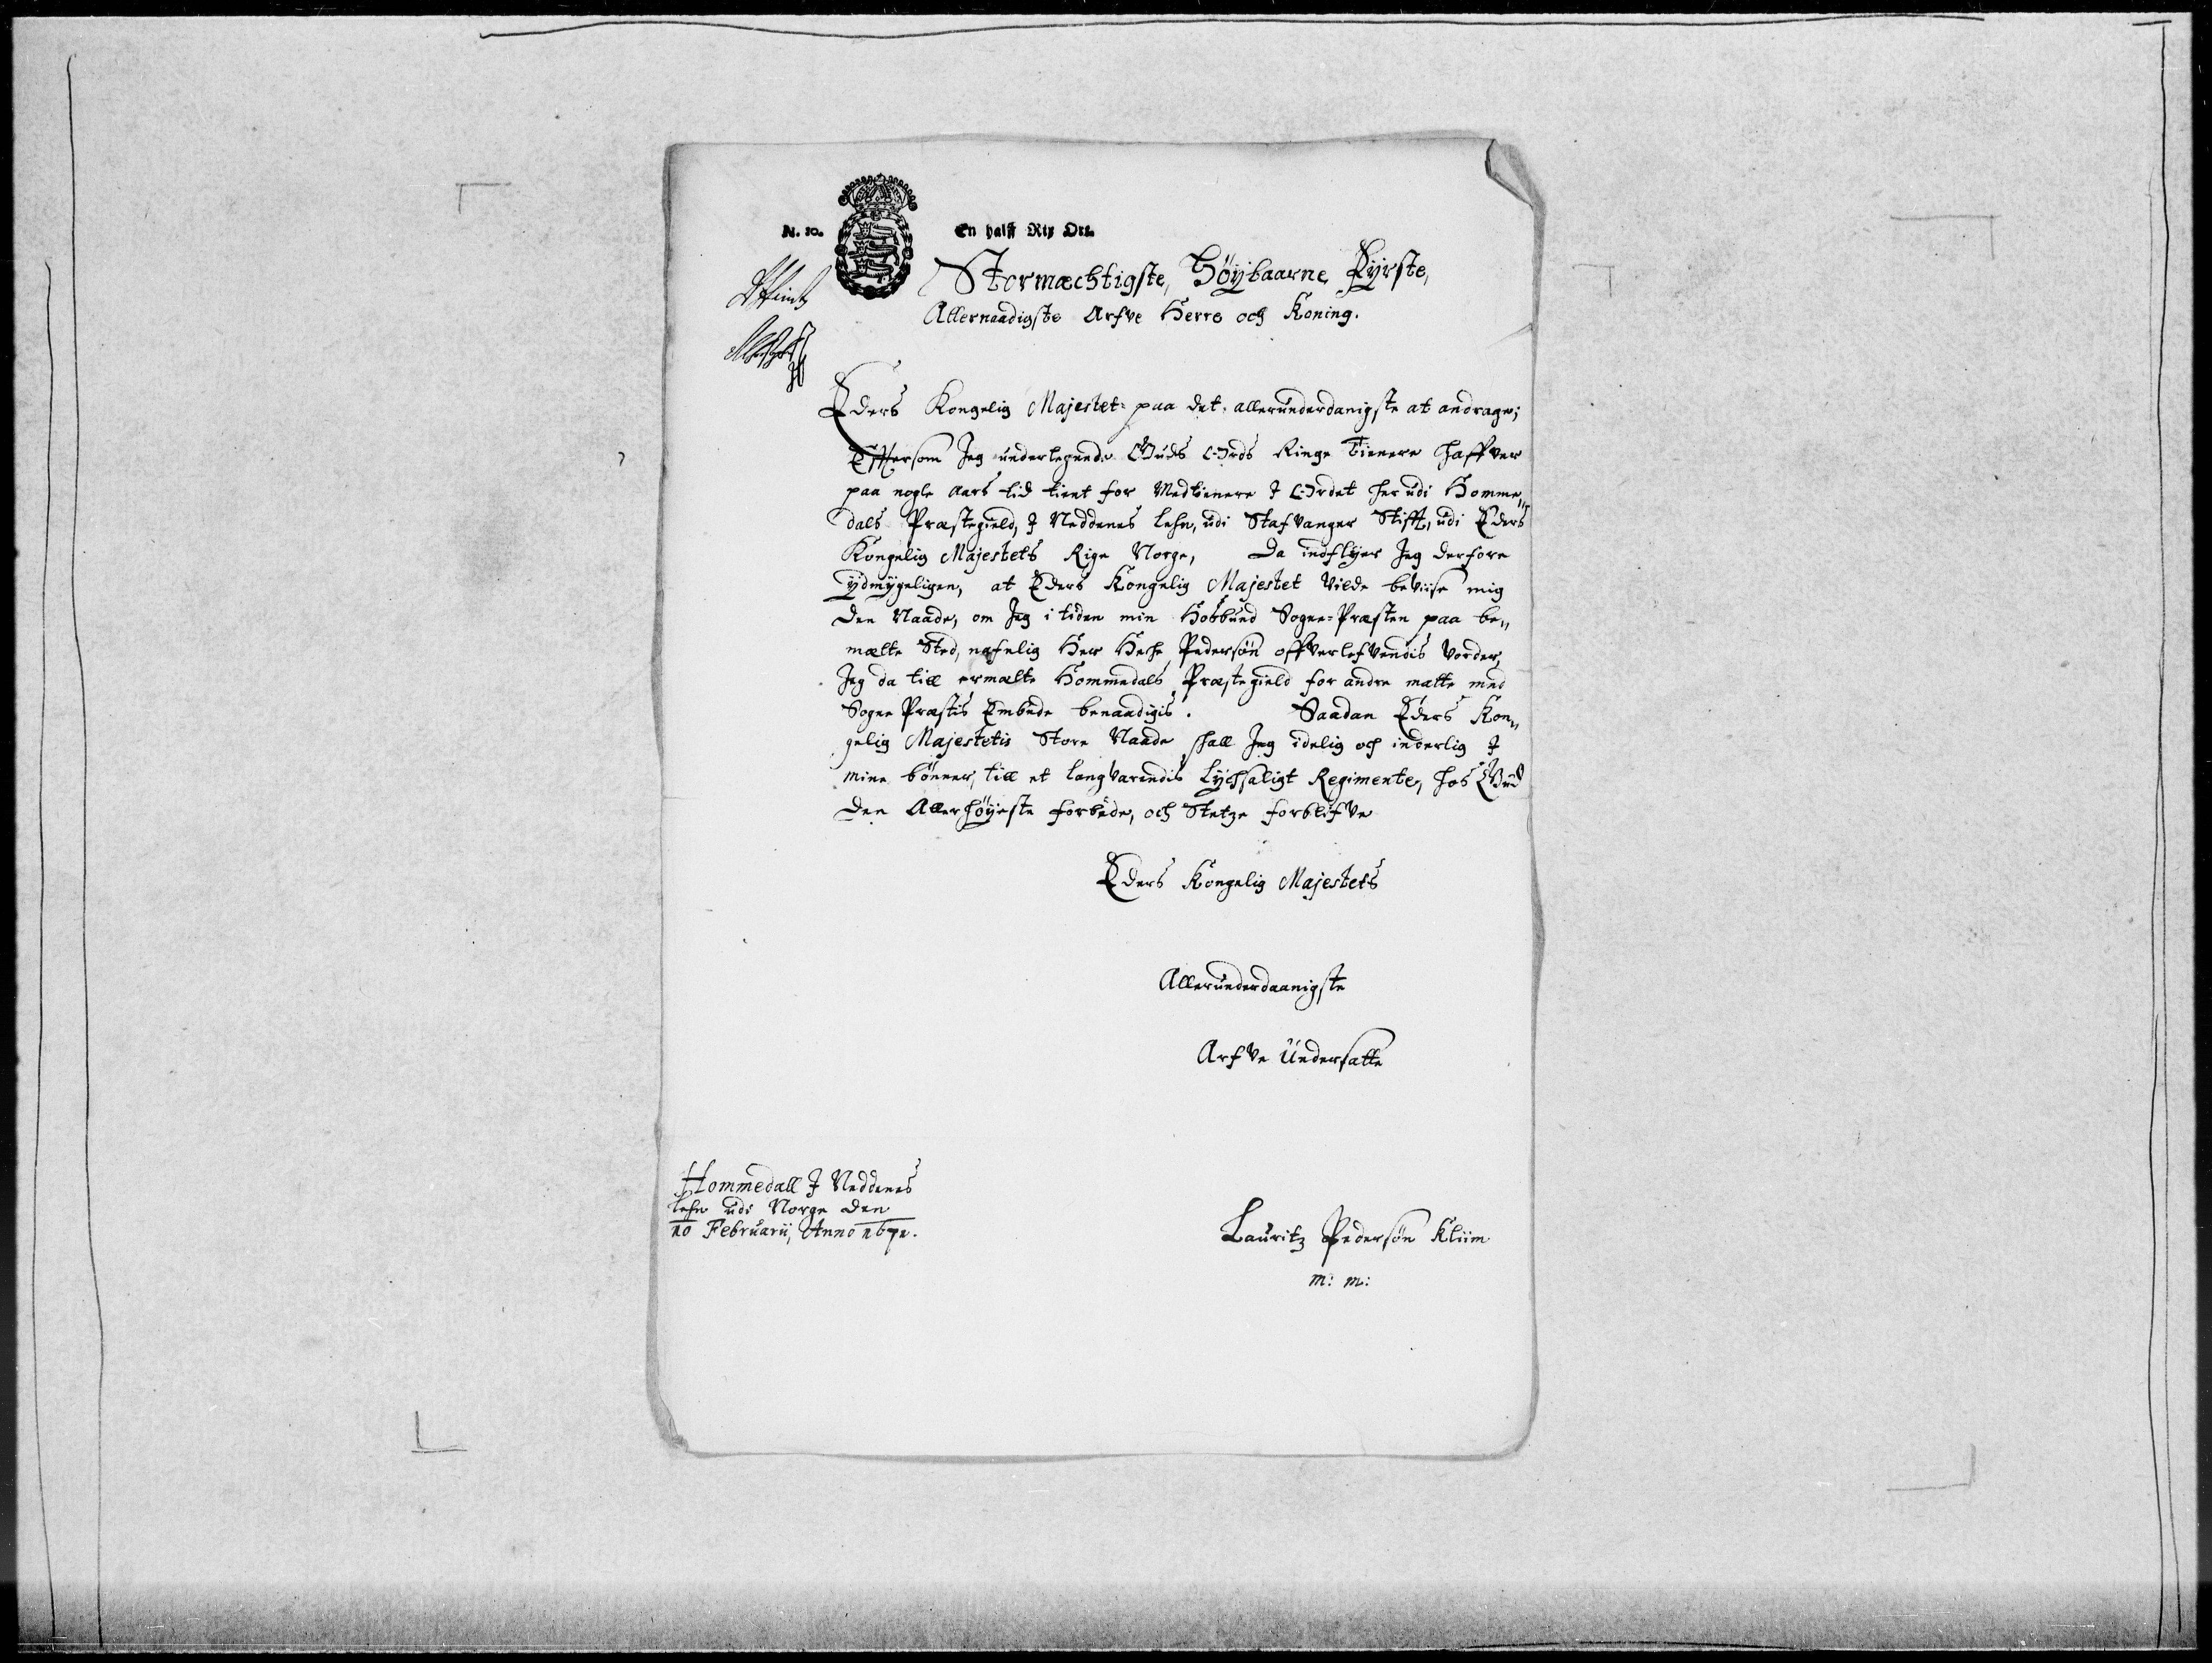 N. 10.
En halff Rix Ort.
Stormæchtigste, Höÿbaarne Fÿrste,
Allernaadigste Arfve Herre och Koning.
Eders Kongelig Majestet paa det allerunderdanigste at andrage;
Effterson Jeg underlegende Guds Ords Ringe Tienere haffver
paa nogle Aars tid tient for Medtienere I Ordet her udi Homme„
dals Præstegield, I Neddenes Lehn, udi Stafvanger Stifft, udi Eders
Kongelig Majestets Rige Norge, Da indflÿer Jeg derfore
ÿdmÿgeligen, at Eders Kongelig Majestet vilde beviise mig
den Naade, om Jeg i tiden min Hosbund Sogne-Præsten paa be„
mælte Sted, nafnlig Her Pedersön offverlefvendis vorder,
Jeg da till ermælte Hommedals Præstegield for andre matte med
Sogne Præstis Embede benaadigis. Saadan Eders Kon„
gelig Majestetis Store Naade shall Jeg idelig och inderlig I
mine bönner, till et langvarendis Lÿchsaligt Regimente, hos Gud
den Allerhöÿeste forbede, och Stetze forblifve
Eders Kongelig Majestets
Allerunderdaanigste
Arfve Undersatte
Hommedall I Neddenes
Lehn udi Norge den
10 Februarii, Anno 1671.
Lauritz Pedersön Kliim
m: m: